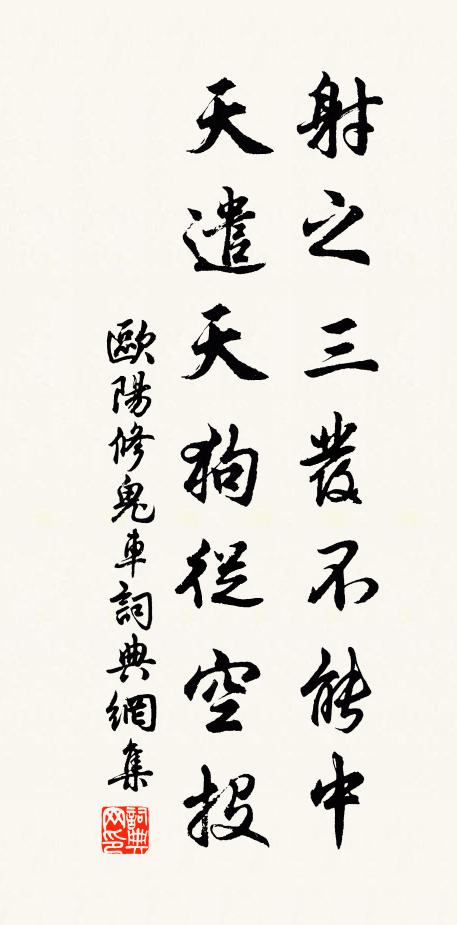 射之三發不能中
天遣天狗從空投
歐陽修鬼車詞典網集
詞典网印